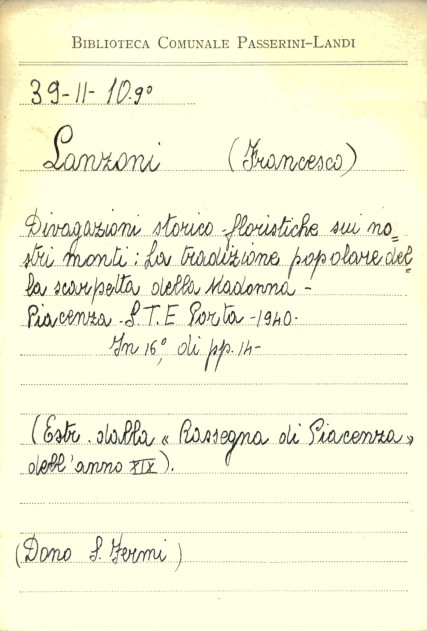 BIBLIOTECA COMUNALE PASSERINI-LANDI
39-II-10.9°
Lanzoni (Francesco)
Divagazioni storico-floristiche sui no=
stri monti: La tradizione popolare del=
la scarpetta della Madonna -
Piacenza - S.T.E Porta - 1940.
In 16°, di pp. 14-
(Estr. dalla « Rassegna di Piacenza »
dell'anno XIX).
(Dono S. Fermi)